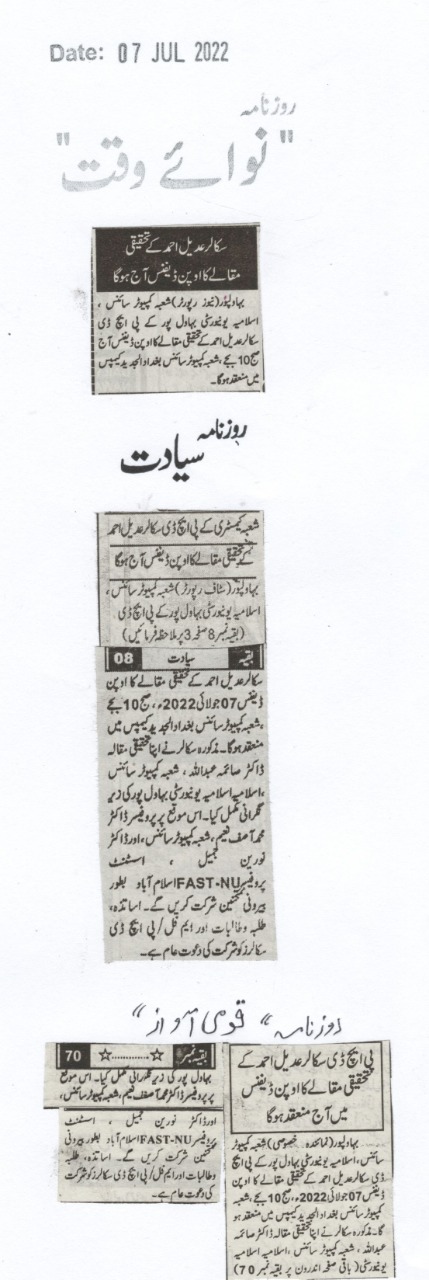 Date: 07 JUL 2022
روزنامہ
"نوائے وقت"
سکالر عدیل احمد کے تحقیقی
مقالے کا اوپن ڈیفنس آج ہوگا
بہاولپور(نیوز رپورٹر)شعبہ کمپیوٹر سائنس ،
اسلامیہ یونیورسٹی بہاول پور کے پی ایچ ڈی
سکالر عدیل احمد کے تحقیقی مقالے کا اوپن ڈیفنس آج
صبح10 بجے ،شعبہ کمپیوٹر سائنس بغداد الجدید کیمپس
میں منعقد ہوگا۔
روزنامہ
سیادت
شعبہ کیمسٹری کے پی ایچ ڈی سکالر عدیل احمد
کے تحقیقی مقالے کا اوپن ڈیفنس آج ہوگا
بہاولپور(سٹاف رپورٹر)شعبہ کمپیوٹر سائنس ،
اسلامیہ یونیورسٹی بہاول پور کے پی ایچ ڈی
(بقیہ نمبر8 صفحہ 3 پر ملاحظہ فرمائیں)
بقیہ سیادت 08
سکالر عدیل احمد کے تحقیقی مقالے کا اوپن
ڈیفنس 07 جولائی 2022ء، صبح 10 بجے
،شعبہ کمپیوٹر سائنس بغداد الجدید کیمپس میں
منعقد ہوگا۔ مذکورہ سکالر نے اپنا تحقیقی مقالہ
ڈاکٹر صائمہ عبداللہ ، شعبہ کمپیوٹر سائنس
،اسلامیہ اسلامیہ یونیورسٹی بہاول پور کی زیر
نگرانی مکمل کیا۔ اس موقع پر پروفیسر ڈاکٹر
محمد آصف نعیم، شعبہ کمپیوٹر سائنس، اور ڈاکٹر
نورین جمیل ، اسسٹنٹ
پروفیسر FAST-NU اسلام آباد بطور
بیرونی ممتحین شرکت کریں گے۔ اساتذہ،
طلبہ وطالبات اور ایم فل/پی ایچ ڈی
سکالرز کو شرکت کی دعوت عام ہے۔
روزنامہ "قومی آواز"
پی ایچ ڈی سکالر عدیل احمد کے
تحقیقی مقالے کا اوپن ڈیفنس
میں آج منعقد ہوگا
بہاولپور(نمائندہ خصوصی)شعبہ کمپیوٹر
سائنس ،اسلامیہ یونیورسٹی بہاول پور کے پی ایچ
ڈی سکالر عدیل احمد کے تحقیقی مقالے کا اوپن
ڈیفنس 07 جولائی 2022ء، صبح 10 بجے ،شعبہ
کمپیوٹر سائنس بغداد الجدید کیمپس میں منعقد ہو
گا۔ مذکورہ سکالر نے اپنا تحقیقی مقالہ ڈاکٹر صائمہ
عبداللہ ، شعبہ کمپیوٹر سائنس ،اسلامیہ اسلامیہ
یونیورسٹی (باقی صفحہ اندرون پر بقیہ نمبر 70)
بقیہ نمبر ☆............☆ 70
بہاول پور کی زیر نگرانی مکمل کیا۔ اس موقع
پر پروفیسر ڈاکٹر محمد آصف نعیم، شعبہ کمپیوٹر سائنس،
اور ڈاکٹر نورین جمیل ، اسسٹنٹ
پروفیسر FAST-NU اسلام آباد بطور بیرونی
ممتحین شرکت کریں گے۔ اساتذہ، طلبہ
وطالبات اور ایم فل/پی ایچ ڈی سکالرز کو شرکت
کی دعوت عام ہے۔